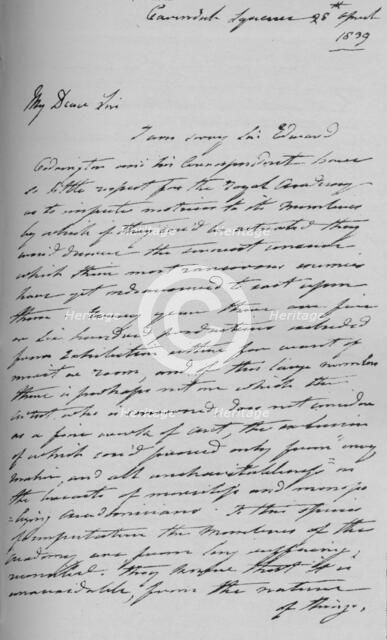 Cavendish Square 28th April
1839
My Dear Sir
I am sorry Sir Edward
Codrington and his Correspondent have
so little respect for the Royal Academy
as to impute motives to its Members
by which if they could be actuated they
would deserve the severest censure
which their most rancorous enemies
have yet endeavoured to cast upon
them. Every year there are five
or six hundred productions excluded
from Exhibition either for want of
merit or room, and of this large number
there is perhaps not one which the
artist who is does not consider
as a fine work of art, the exclusion
of which could proceed only from "envy
malice, and all uncharitableness" in
the hearts of and monopo
=lising academicians. To this species
of imputation the Members of the
Academy are from long suffering
They know that it is
unavoidable, from the nature
of things,
Heritage
Heritage
Heritage
Heritage
Heritage
Heritage
Images
Images
Images
Images
Images
Images
C